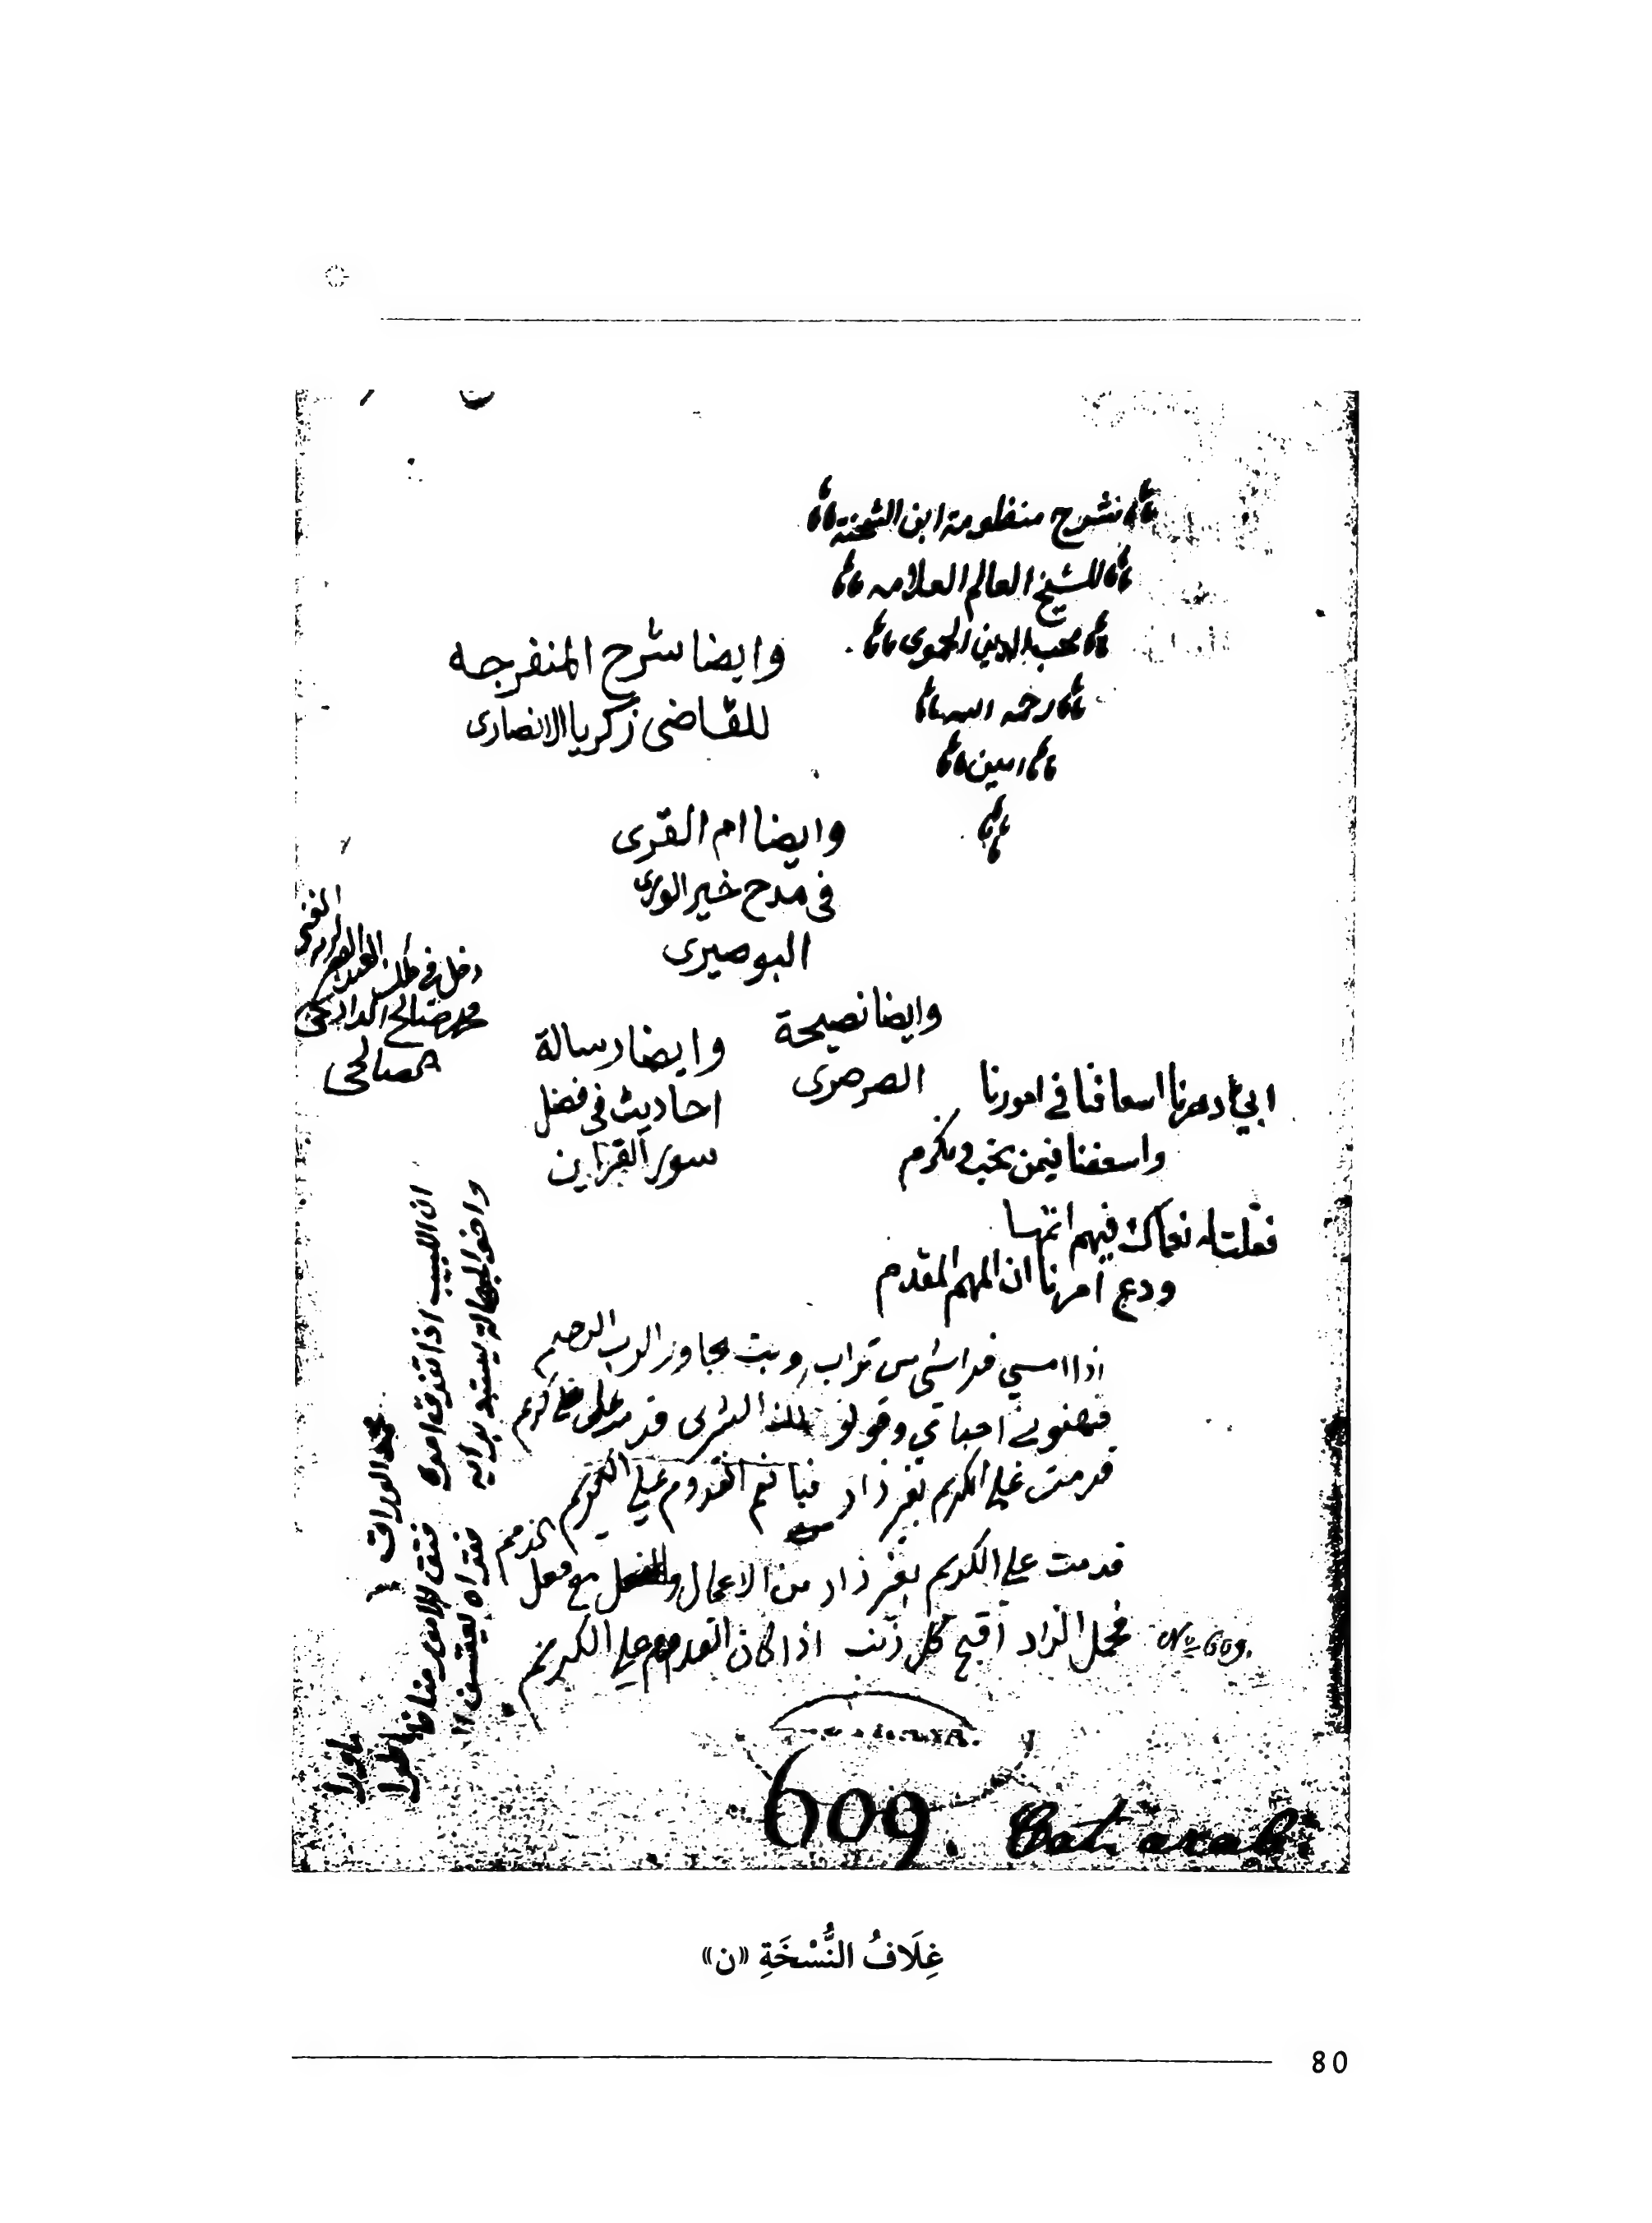 شرح منظومة ابن الشحنة
للشيخ العالم العلامه
محب الدين الحموى
رحمه الله
امين
وايضا شرح المنفرجه
للقاضى زكريا الانصارى
وايضا ام القرى
فى مدح خير الورى
البوصيرى
وايضا نصيحة
الصرصرى
وايضا رسالة
احاديث فى فضل
سور القران
دخل فى
محمد صالح
الصالحى
ابى دهرنا اسعافنا فى امورنا
واسعفنا فيمن نحب ونكرم
فقلت له نعماك فيهم اتمها
ودع امرنا ان المهم المقدم
اذا امسى فراشى من تراب وبت مجاور الرب الرحيم
فهنونى احباى وقولو لك البشرى قدمت على كريم
قدمت على الكريم بغير زاد فيا نعم القدوم على الكريم
قدمت على الكريم بغير زاد من الاعمال
فحمل الزاد اقبح كل ذنب اذا كان القدوم على الكريم
ان اللبيب اذا تفرق امره فتق الامور مناظرا
واخو الجهالة يستبد برايه فتراه يعتسف
محمد الوراق
No 609.
609. Cat. arab.
غِلَافُ النُّسْخَةِ «ن»
80